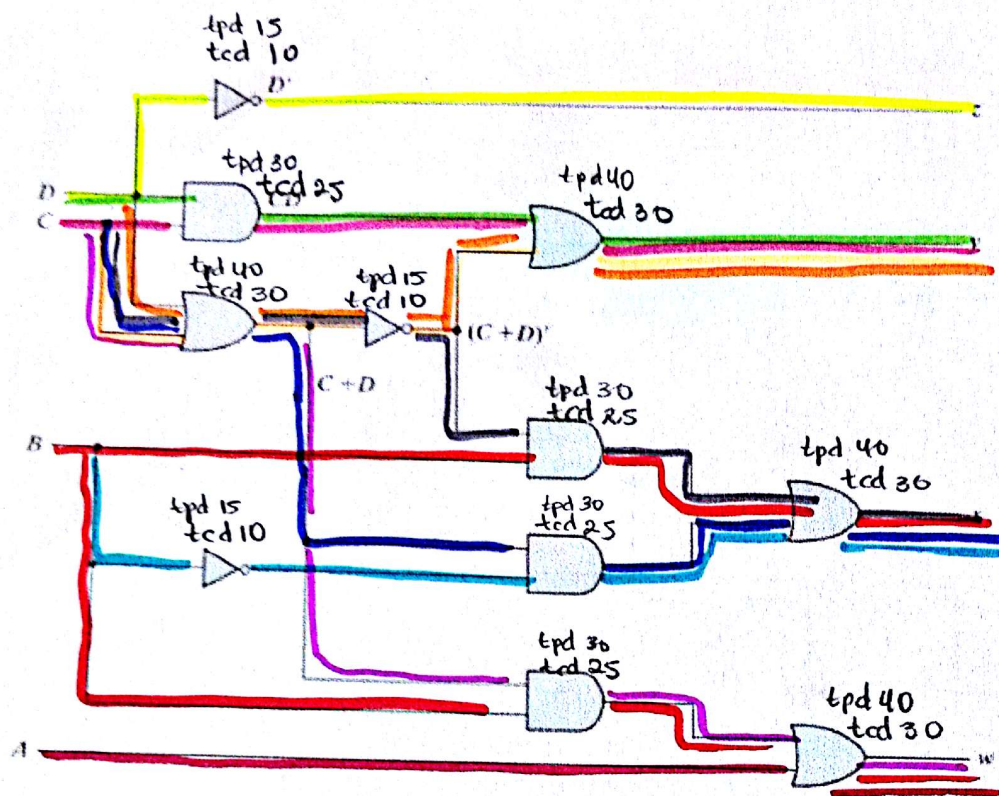 tpd 15
tcd 10
D'
tpd 30
tcd 25
tpd 40
tcd 30
D
C
tpd 40
tcd 30
tpd 15
tcd 10
(C + D)'
C + D
tpd 30
tcd 25
B
tpd 40
tcd 30
tpd 15
tcd 10
tpd 30
tcd 25
tpd 30
tcd 25
tpd 40
tcd 30
A
W